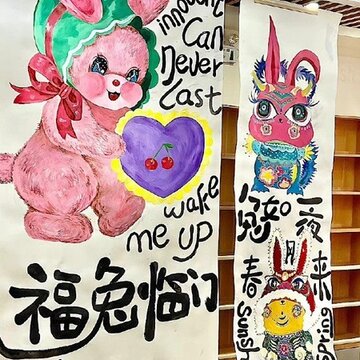 innocent
Can
Never
Last
wake
me up
福兔临门
忽如一夜
春月来
Sunsh
Spring